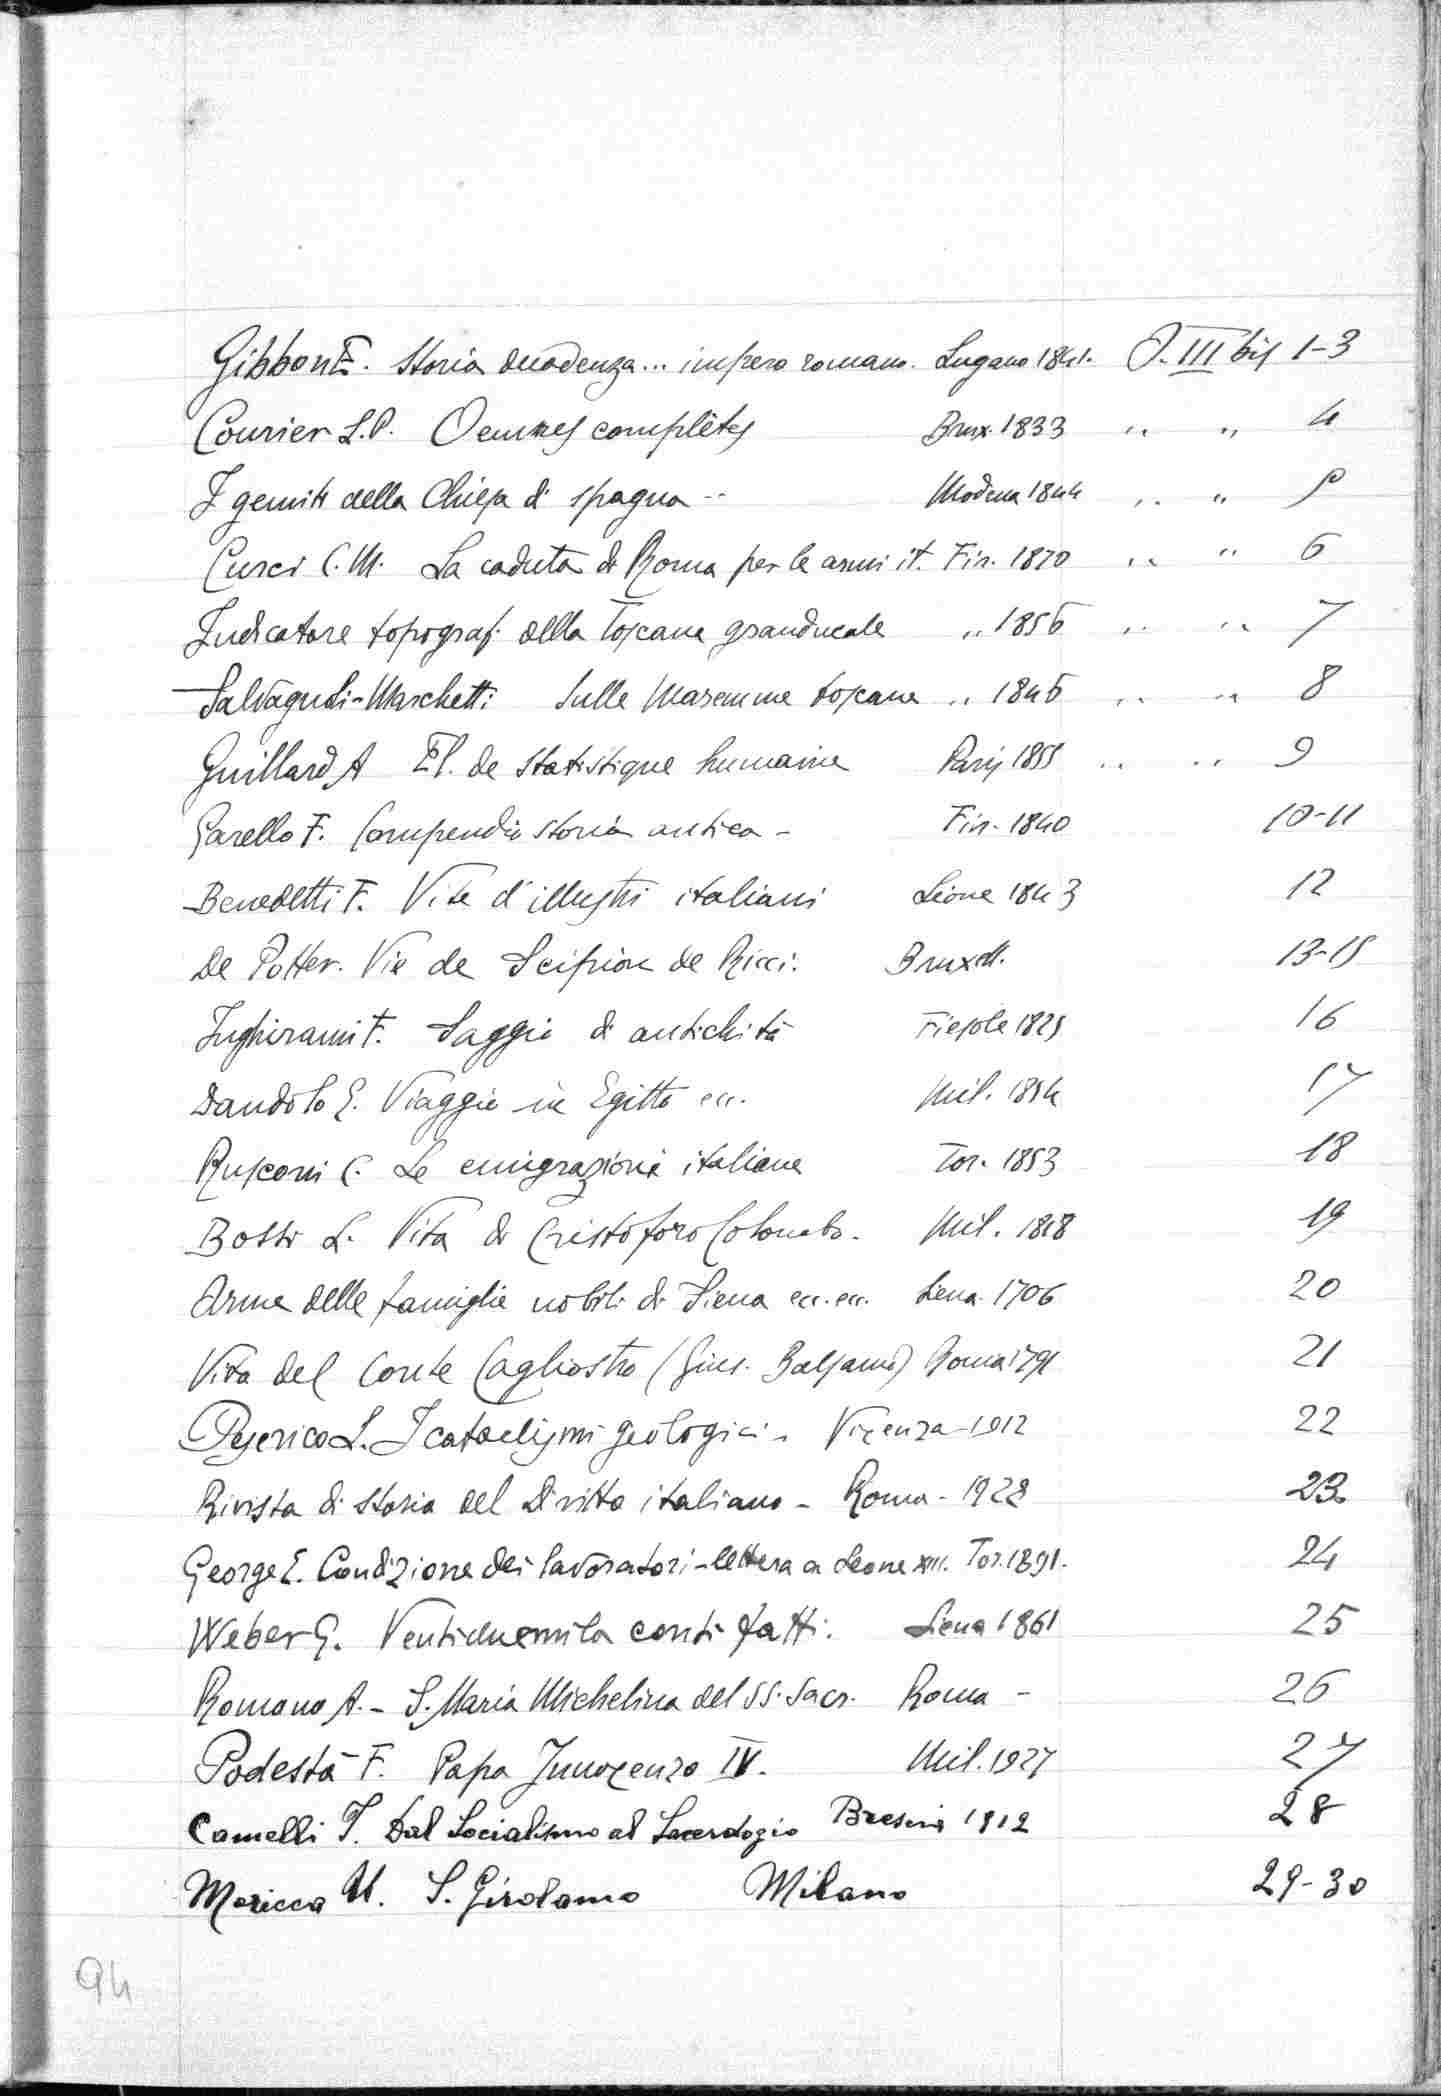 Gibbon E. Storia decadenza... impero romano. Lugano 1841. O. III bis 1-3
Courier L.P. Oeuvres complètes Brux. 1833 " " 4
I gemiti della Chiesa di Spagna -- Modena 1844 " " 5
Curci C.M. La caduta di Roma per le armi it. Fir. 1870 " " 6
Indicatore topograf. della Toscana granducale " 1856 " " 7
Salvagnoli-Marchetti Sulle Maremme toscane " 1846 " " 8
Guillard A El. de statistique humaine Paris 1855 " " 9
Garello F. Compendio storia antica - Fir. 1840 10-11
Benedetti F. Vite d'illustri italiani Lione 1843 12
De Potter. Vie de Scipion de Ricci. Bruxell. 13-15
Inghirami F. Saggio di antichità Fiesole 1825 16
Dandolo E. Viaggio in Egitto ecc. Mil. 1854 17
Rusconi C. Le emigrazioni italiane Tor. 1853 18
Bossi L. Vita di Cristoforo Colombo. Mil. 1818 19
Arme delle famiglie nobili di Siena ecc. ecc. Siena 1706 20
Vita del Conte Cagliostro (Gius. Balsamo) Roma 1791 21
Peserico L. I cataclismi geologici - Vicenza - 1912 22
Rivista di storia del Diritto italiano - Roma - 1928 23
George E. Condizione dei lavoratori - lettera a Leone XIII. Tor. 1891. 24
Weber G. Ventiduemila conti fatti. Siena 1861 25
Romano A. - S. Maria Michelina del SS. Sacr. Roma - 26
Podestà F. Papa Innocenzo IV. Mil. 1927 27
Camelli I. Dal Socialismo al Sacerdozio Brescia 1912 28
Moricca U. S. Girolamo Milano 29-30
94